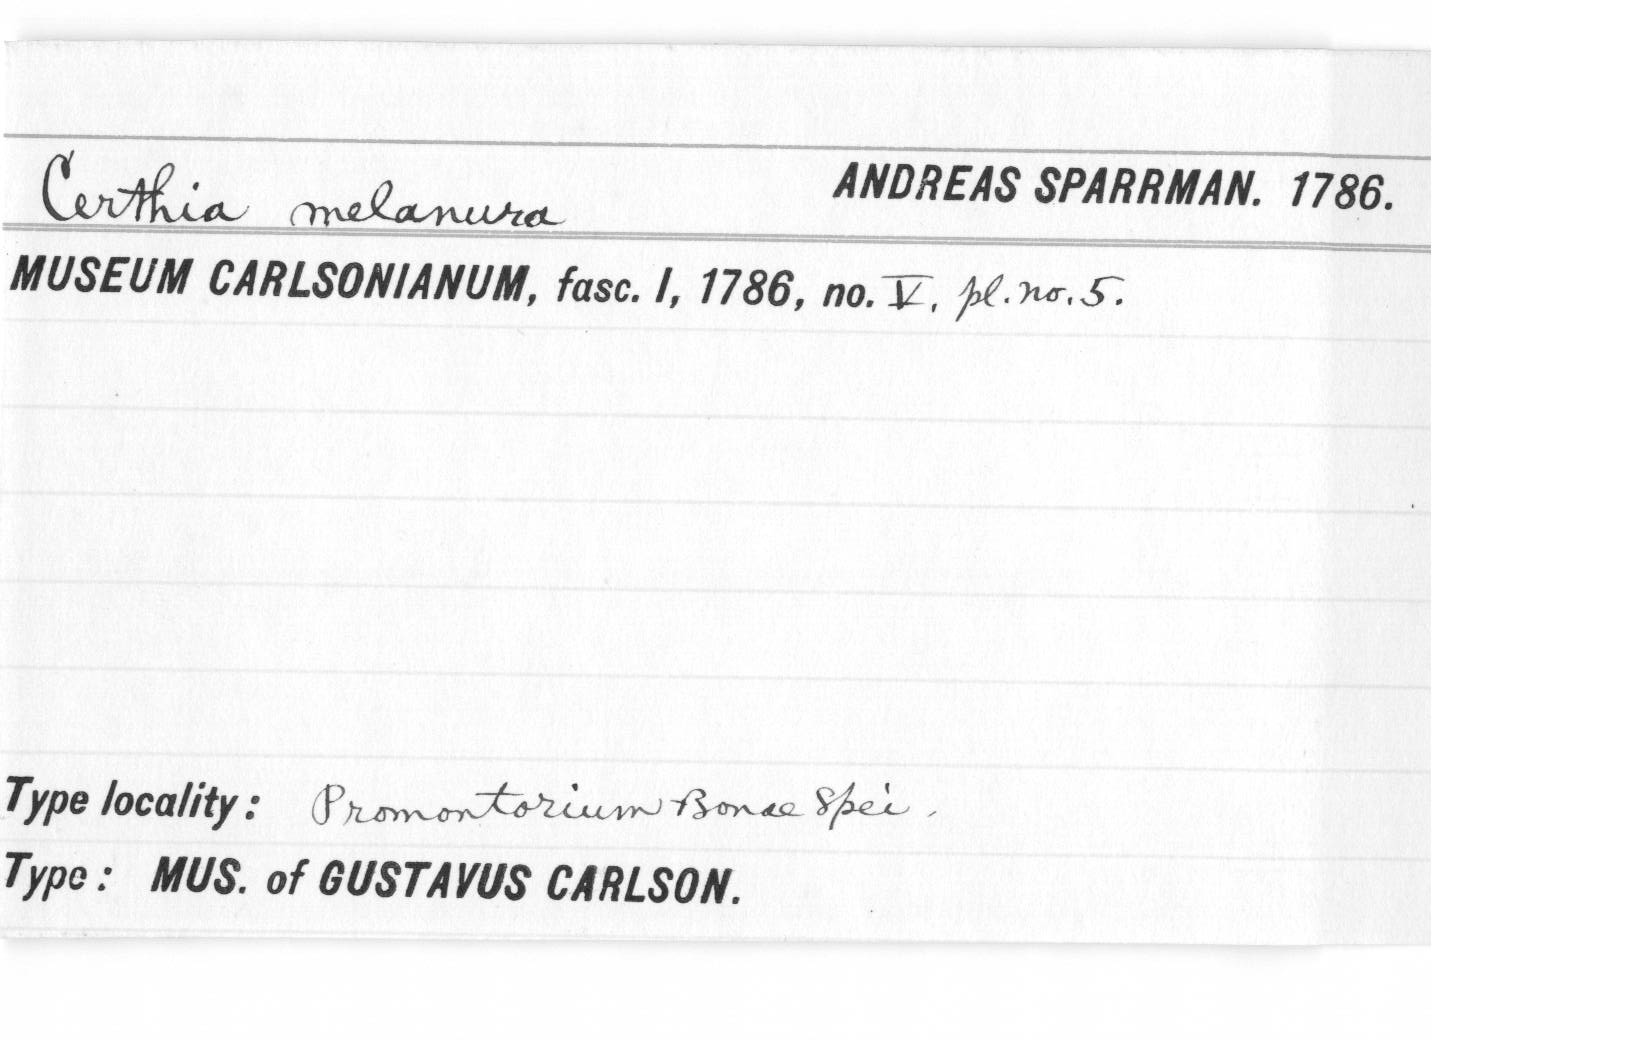 Certhia melanura ANDREAS SPARRMAN. 1786.
MUSEUM CARLSONIANUM, fasc. I, 1786, no. V, pl. no. 5.
Type locality: Promontorium Bonae Spei.
Type: MUS. of GUSTAVUS CARLSON.